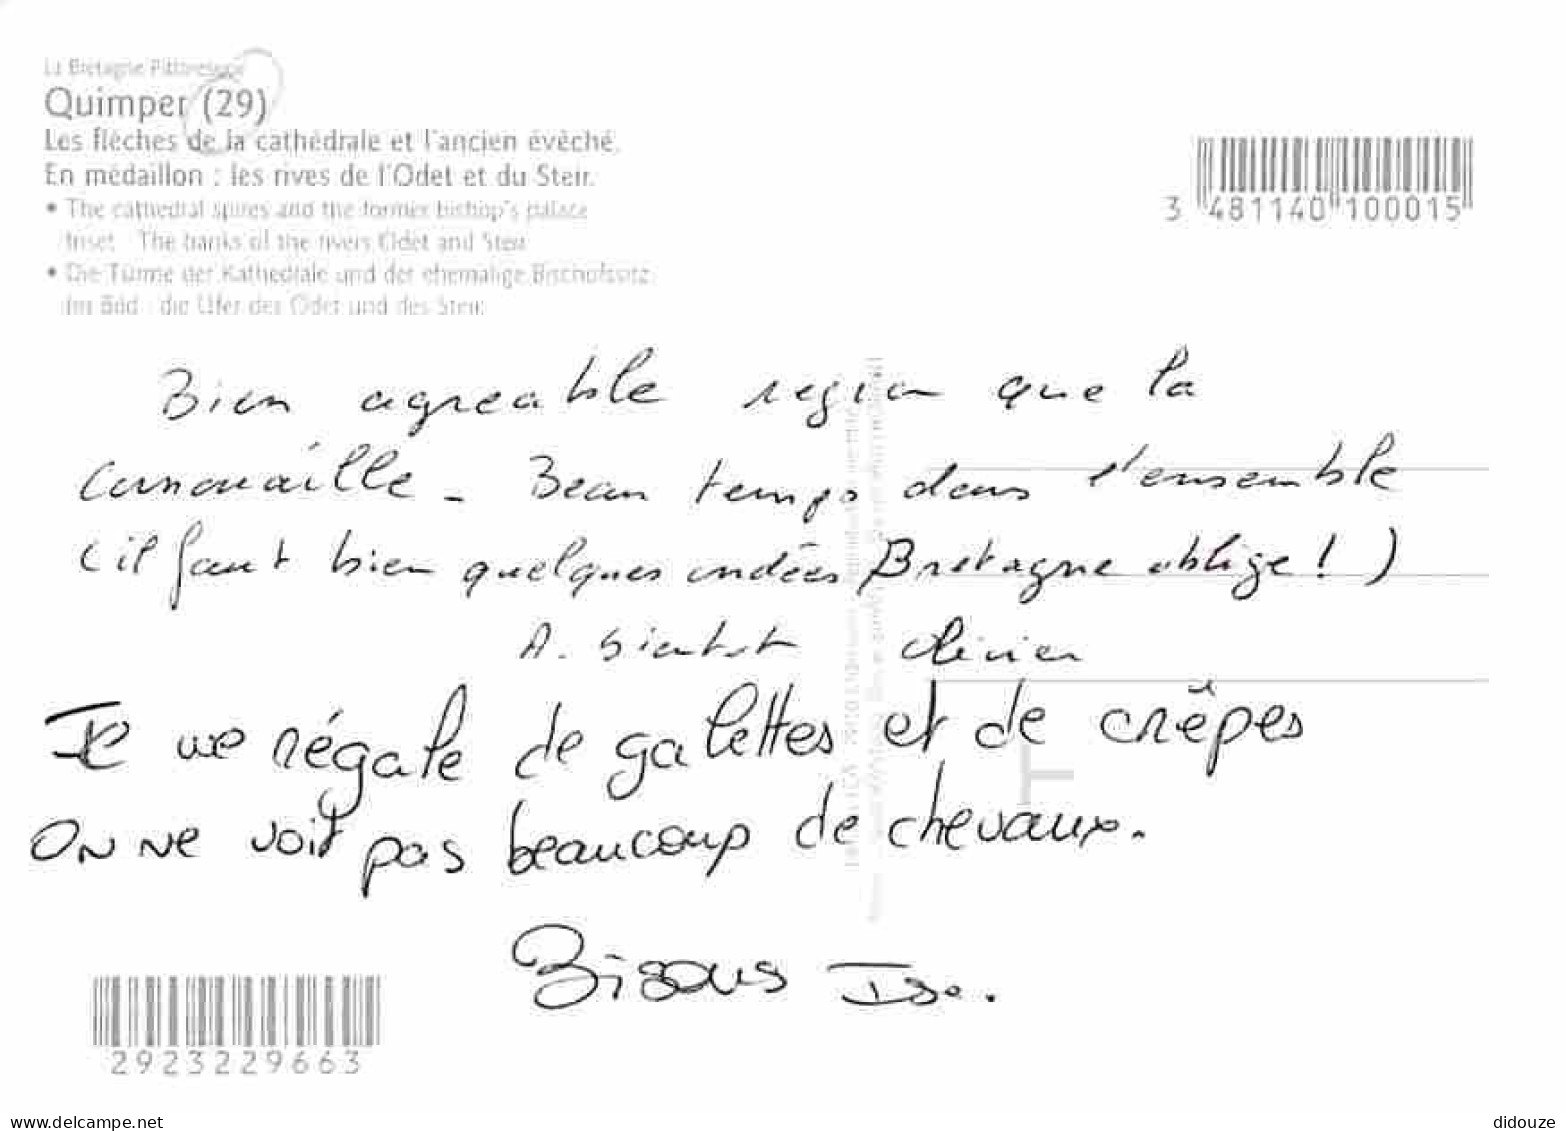 La Bretagne Pittoresque
Quimper (29)
Les flèches de la cathédrale et l'ancien évêché.
En médaillon : les rives de l'Odet et du Steir.
• The cathedral spires and the former bishop's palace
Inset : The banks of the rivers Odet and Steir
• Die Türme der Kathedrale und der ehemalige Bischofssitz.
Im Bild : die Ufer der Odet und des Steir.
3 481140 100015
Bien agreable region que la
Cornouaille - Beau temps dans l'ensemble
(il faut bien quelques ondées Bretagne oblige ! )
A. bientot Olivier
Je me régale de galettes et de crêpes
On ne voit pas beaucoup de chevaux.
Bisous Isa.
2923229663
www.delcampe.net
didouze